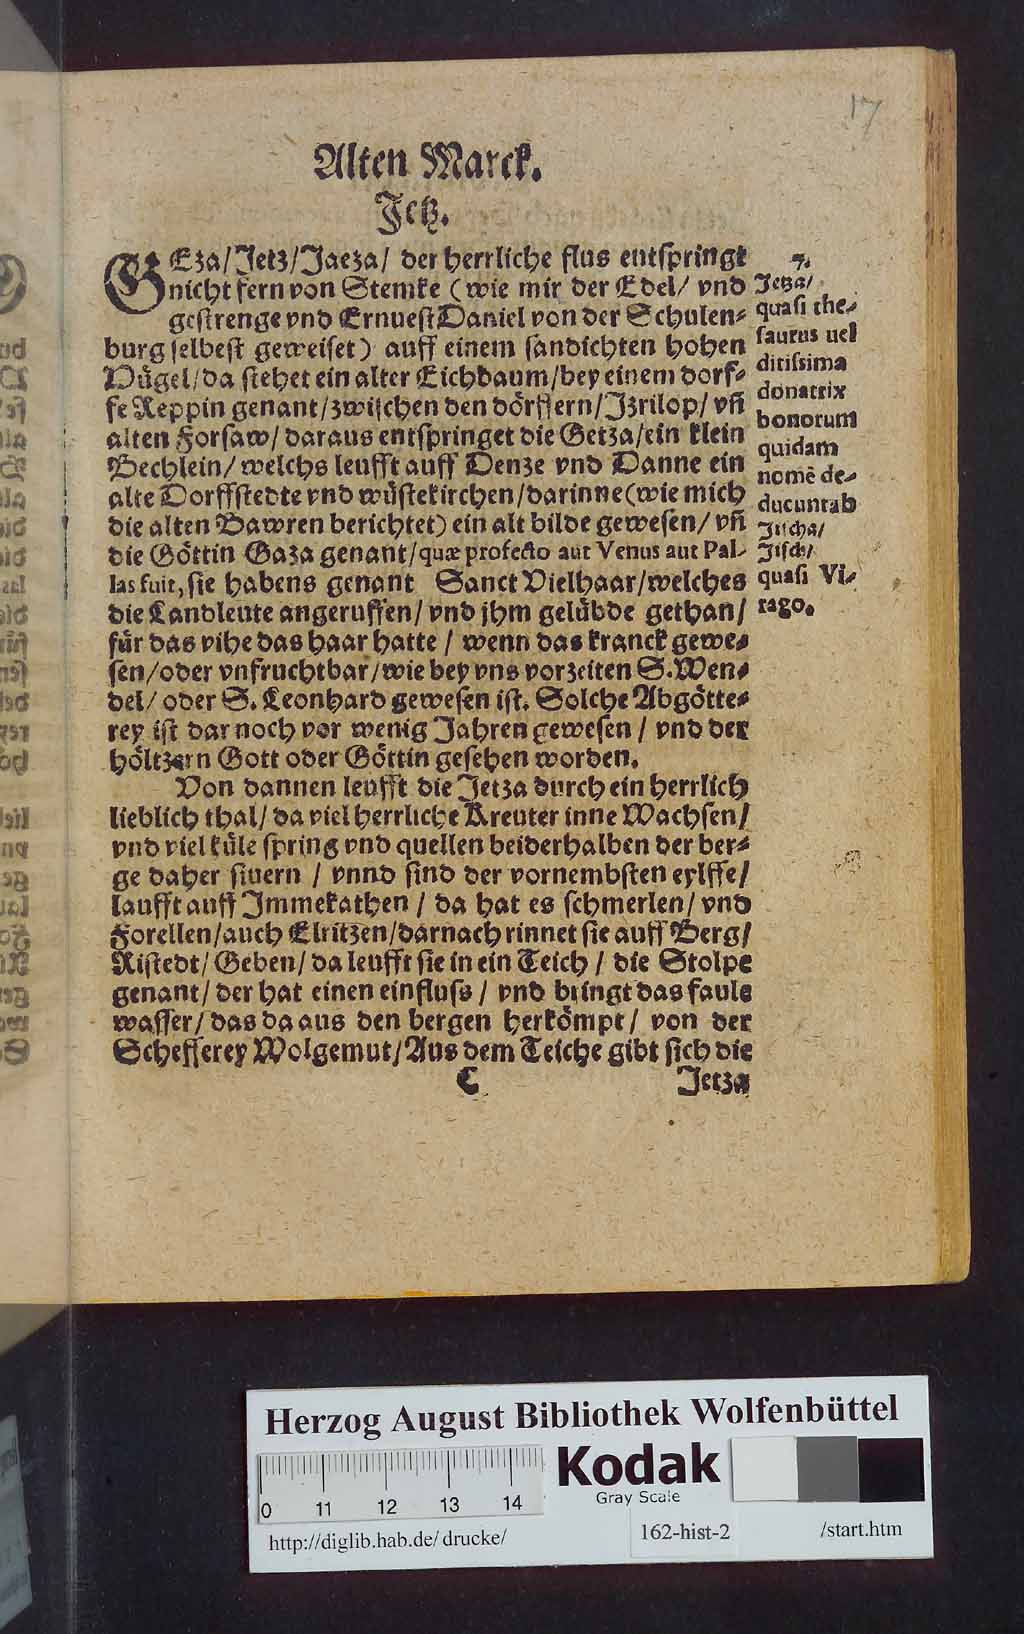 17
Alten Marck.
Jetz.
GEza/Jetz/Jaeza/ der herrliche flus entspringt
nicht fern von Stemke (wie mir der Edel/ vnd
gestrenge vnd Ernuest Daniel von der Schulen-
burg selbest geweiset) auff einem sandichten hohen
Hügel/da stehet ein alter Eichbaum/bey einem dorf-
fe Reppin genant/zwischen den dörffern/Jzrilop/ vn̄
alten Forsaw/ daraus entspringet die Getza/ein klein
Bechlein/ welchs leufft auff Denze vnd Danne ein
alte Dorffstedte vnd wüstekirchen/darinne(wie mich
die alten Bawren berichtet) ein alt bilde gewesen/ vn̄
die Göttin Gaza genant/quæ profecto aut Venus aut Pal-
las fuit, sie habens genant Sanct Vielhaar/welches
die Landleute angeruffen/ vnd jhm gelübde gethan/
für das vihe das haar hatte / wenn das kranck gewe-
sen/oder vnfruchtbar/wie bey vns vorzeiten S.Wen-
del/ oder S. Leonhard gewesen ist. Solche Abgötte-
rey ist dar noch vor wenig Jahren gewesen / vnd der
höltzern Gott oder Göttin gesehen worden.
Von dannen leufft die Jetza durch ein herrlich
lieblich thal/ da viel herrliche Kreuter inne Wachsen/
vnd viel küle spring vnd quellen beiderhalben der ber-
ge daher siuern / vnnd sind der vornembsten eylffe/
laufft auff Immekathen / da hat es schmerlen/ vnd
Forellen/auch Elritzen/darnach rinnet sie auff Berg/
Ristedt/ Geben/ da leufft sie in ein Teich / die Stolpe
genant/ der hat einen einfluss / vnd bringt das faule
wasser/ das da aus den bergen herkömpt/ von der
Schefferey Wolgemut/Aus dem Teiche gibt sich die
C Jetza
7.
Jetza/
quasi the-
saurus uel
ditissima
donatrix
bonorum
quidam
nomē de-
ducunt ab
Jischa/
Jisch/
quasi Vi-
rago.
Herzog August Bibliothek Wolfenbüttel
0 11 12 13 14
Kodak
Gray Scale
http://diglib.hab.de/ drucke/ 162-hist-2 /start.htm